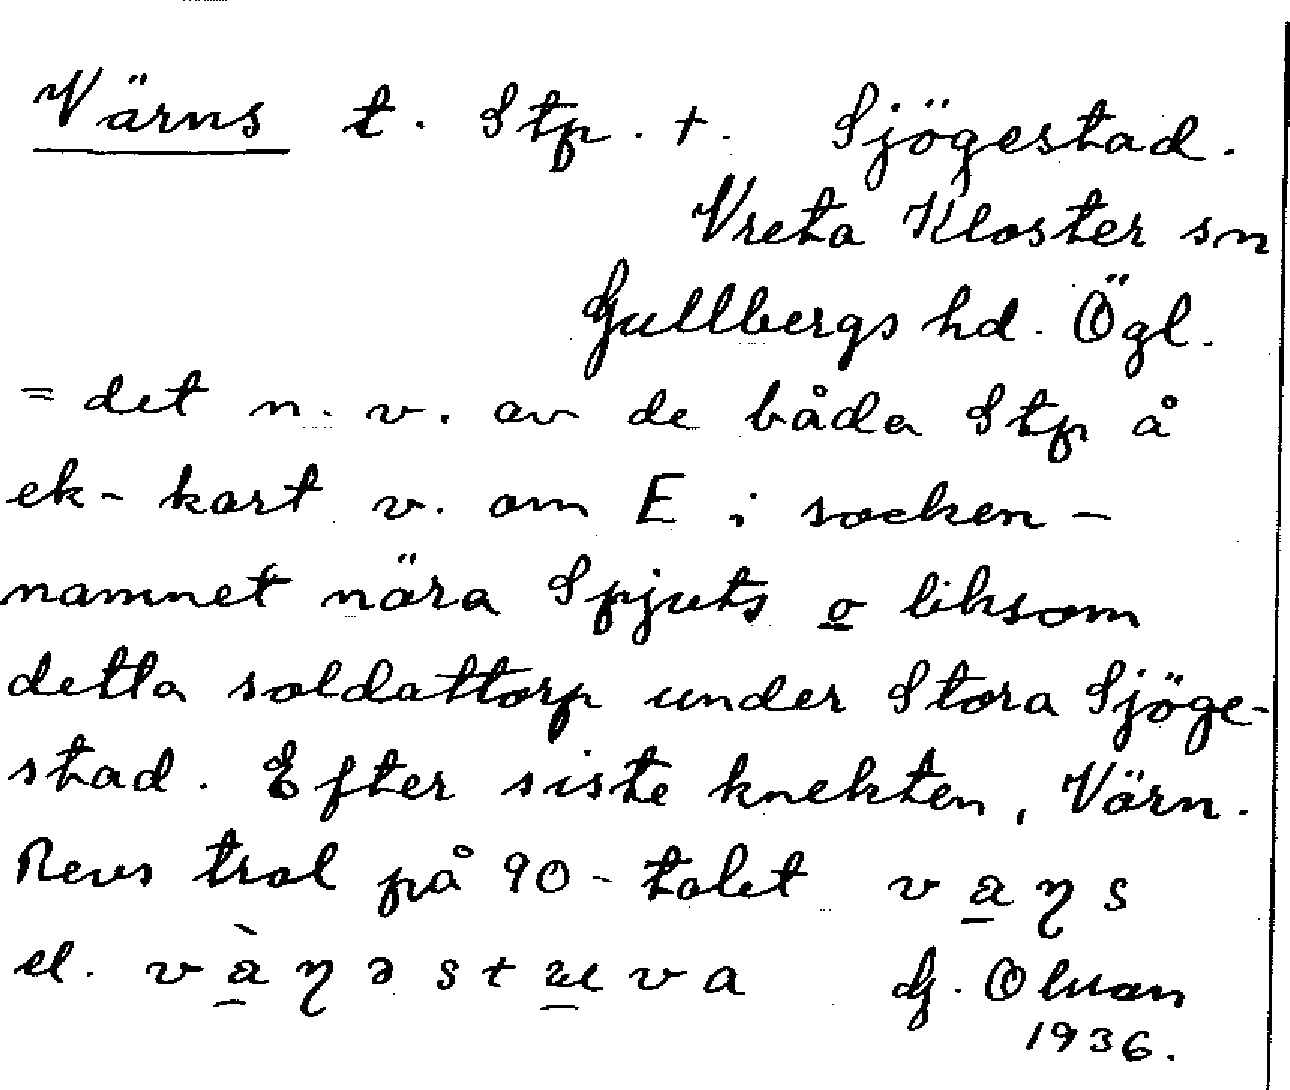 Värns t. Stp. +. Sjögestad.
Vreta Kloster sn
Gullbergs hd. Ögl.
= det n. v. av de båda Stp å
ek-kart v. om E i socken-
namnet nära Spjuts o liksom
detta soldattorp under Stora Sjöge-
stad. Efter siste knekten, Värn.
Revs trol på 90-talet
el.
1936.